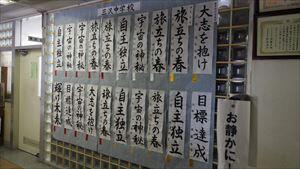 沢中学校
大志を抱け
旅立ちの春
宇宙の神秘
自主独立
旅立ちの春
宇宙の神秘
旅立ちの春
自主独立
目標達成
自主独立
旅立ちの春
宇宙の神秘
自主独立
旅立ちの春
大志を抱け
宇宙の神秘
目標達成
輝く未来
お静かに!